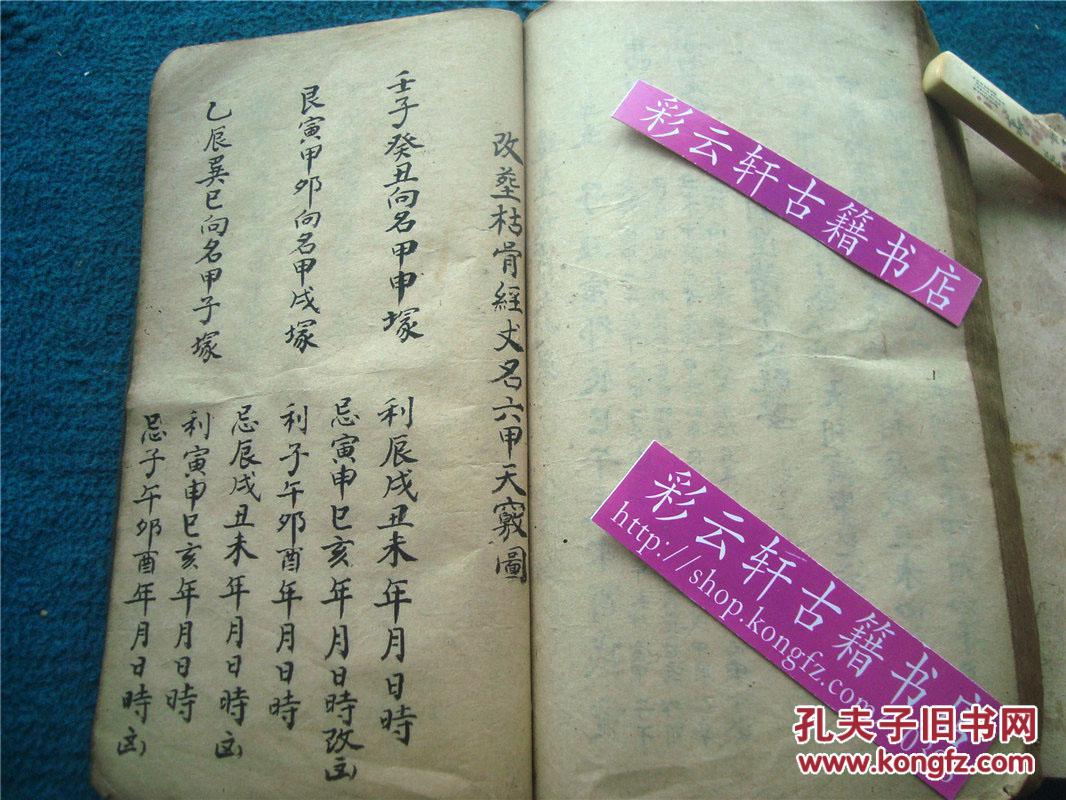 改塟枯骨經丈名六甲天竅圖
壬子癸丑向名甲申塚
利辰戌丑未年月日時
忌寅申巳亥年月日時改凶
艮寅甲卯向名甲戌塚
利子午卯酉年月日時
忌辰戌丑未年月日時凶
乙辰巽巳向名甲子塚
利寅申巳亥年月日時
忌子午卯酉年月日時凶
彩云轩古籍书店
彩云轩古籍书店
http://shop.kongfz.com
孔夫子旧书网
www.kongfz.com